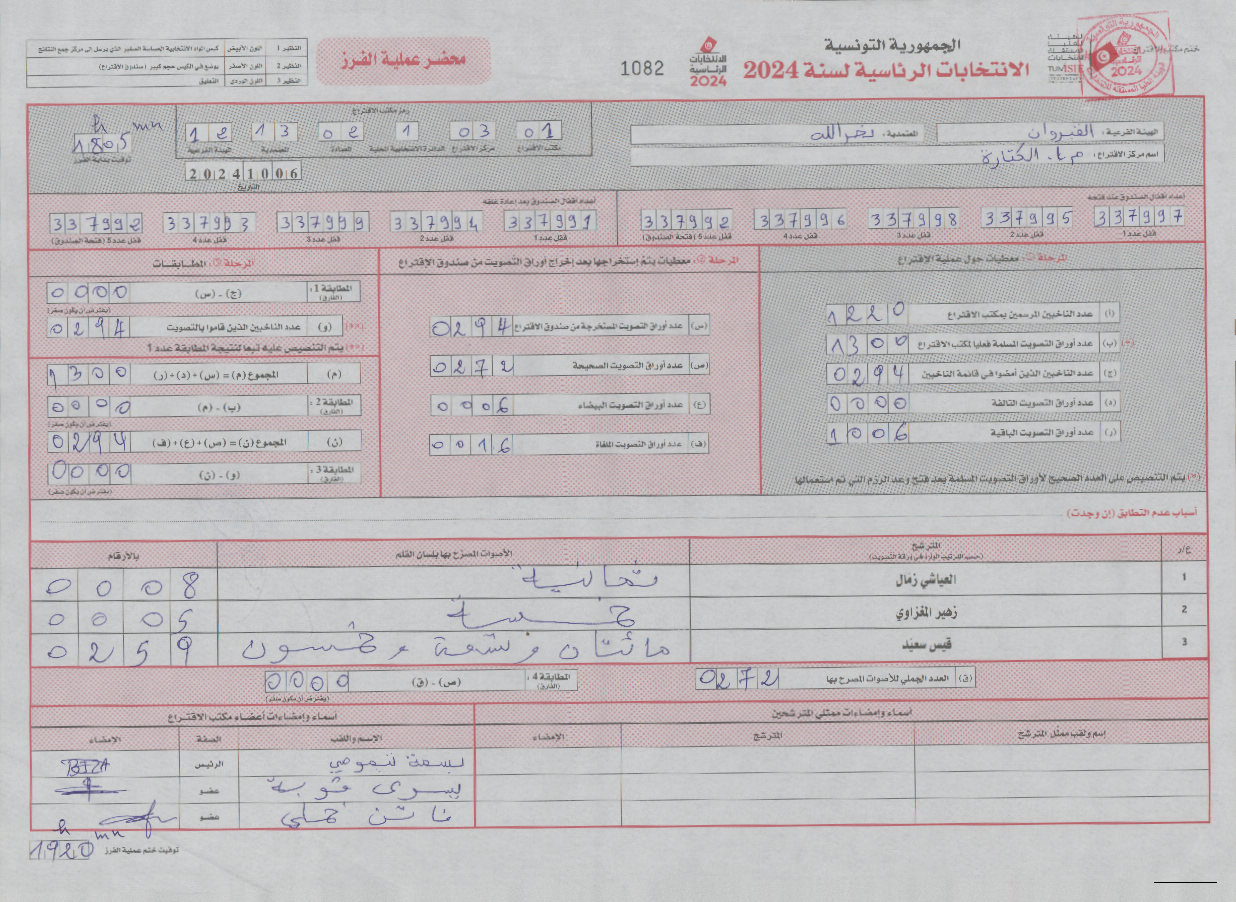 الجمهورية التونسية
الانتخابات الرئاسية لسنة 2024
ختم مكتب الاقتراع
الانتخابات الرئاسية 2024
1082
محضر عملية الفرز
النظير 1 اللون الأبيض كيس المواد الانتخابية الحساسة الصغير الذي يرسل الى مركز جمع النتائج
النظير 2 اللون الأصفر يوضع في الكيس حجم كبير (صندوق الاقتراع)
النظير 3 اللون الوردي التعليق
الهيئة الفرعية: القيروان المعتمدية: نصرالله
اسم مركز الاقتراع: م.ا. الكتارة
رمز مكتب الاقتراع
01 03 1 02 13 12
مكتب الاقتراع مركز الاقتراع الدائرة الانتخابية المحلية العمادة المعتمدية الهيئة الفرعية
20241006
التاريخ
h mn
1805
توقيت بداية الفرز
أعداد أقفال الصندوق عند فتحه
337997 337995 337998 337996 337992
قفل عدد 1 قفل عدد 2 قفل عدد 3 قفل عدد 4 قفل عدد 5 (فتحة الصندوق)
أعداد أقفال الصندوق بعد إعادة غلقه
337991 337994 337999 337993 337992
قفل عدد 1 قفل عدد 2 قفل عدد 3 قفل عدد 4 قفل عدد 5 (فتحة الصندوق)
المرحلة (1): معطيات حول عملية الإقتراع
(أ) عدد الناخبين المرسمين بمكتب الاقتراع 1220
(*) (ب) عدد أوراق التصويت المسلمة فعليا لمكتب الاقتراع 1300
(ج) عدد الناخبين الذين أمضوا في قائمة الناخبين 0294
(د) عدد أوراق التصويت التالفة 0000
(ر) عدد أوراق التصويت الباقية 1006
(*) يتم التنصيص على العدد الصحيح لأوراق التصويت المسلمة بعد فتح وعد الرزم التي تم استعمالها
المرحلة (2): معطيات يتم إستخراجها بعد إخراج أوراق التصويت من صندوق الإقتراع
(س) عدد أوراق التصويت المستخرجة من صندوق الاقتراع 0294
(ص) عدد أوراق التصويت الصحيحة 0272
(ع) عدد أوراق التصويت البيضاء 0006
(ف) عدد أوراق التصويت الملغاة 0016
المرحلة (3): المطابقات
المطابقة 1: (الفارق) (ج) - (س) 0000
(يفترض أن يكون صفر)
(**) (و) عدد الناخبين الذين قاموا بالتصويت 0294
(**) يتم التنصيص عليه تبعا لنتيجة المطابقة عدد 1
(م) المجموع (م) = (س) + (د) + (ر) 1300
المطابقة 2: (الفارق) (ب) - (م) 0000
(يفترض أن يكون صفر)
(ن) المجموع (ن) = (ص) + (ع) + (ف) 0294
المطابقة 3: (الفارق) (و) - (ن) 0000
(يفترض أن يكون صفر)
أسباب عدم التطابق (إن وجدت)
ع/ر المترشح الأصوات المصرح بها بلسان القلم بالأرقام
(حسب الترتيب الوارد في ورقة التصويت)
1 العياشي زمال ثمانية 0008
2 زهير المغزاوي خمسة 0005
3 قيس سعيّد مائتان وتسعة وخمسون 0259
(ق) العدد الجملي للأصوات المصرح بها 0272
المطابقة 4: (الفارق) (ص) - (ق) 0000
(يفترض أن يكون صفر)
أسماء وإمضاءات ممثلي المترشحين
إسم ولقب ممثل المترشح المترشح الإمضاء
أسماء وإمضاءات أعضاء مكتب الاقتراع
الإسم واللقب الصفة الإمضاء
بسمة الرئيس
يسرى عضو
فاتن عضو
h mn
توقيت ختم عملية الفرز 1920